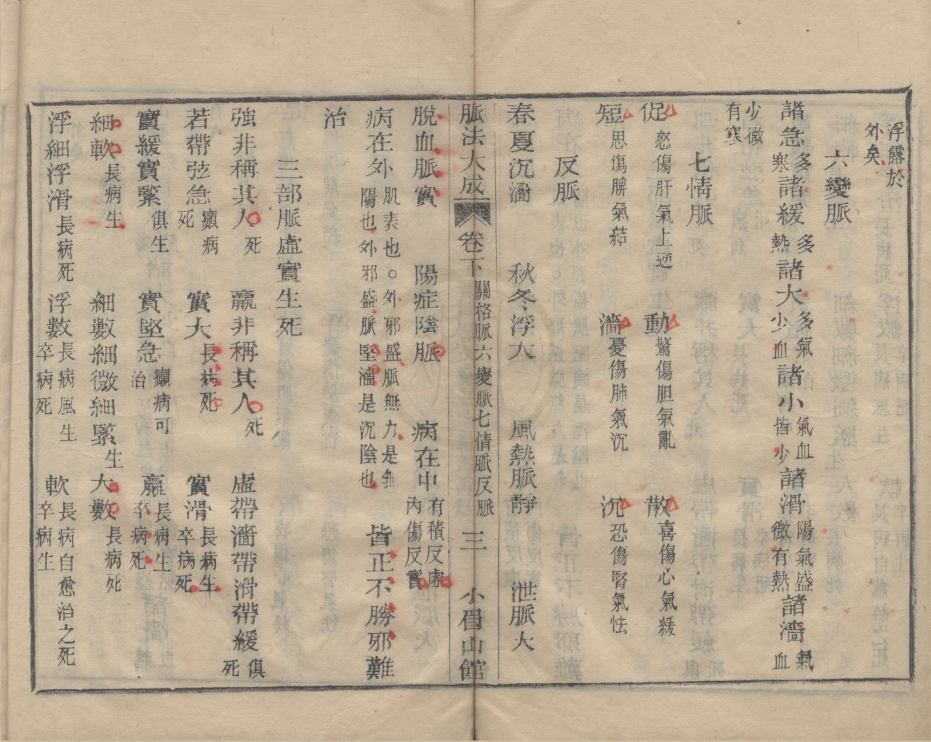 浮露於外矣
六變脈
諸急多寒諸緩多熱諸大多氣少血諸小氣血皆少諸滑陽氣盛微有熱諸濇氣血
少微有寒
七情脈
促怒傷肝氣上逆 動驚傷胆氣亂 散喜傷心氣緩
短思傷脾氣結 濇憂傷肺氣沉 沉恐傷腎氣怯
反脈
春夏沉濇 秋冬浮大 風熱脈靜 泄脈大
脈法大成 卷下 關格脈六變脈七情脈反脈 三 小眉山館
脫血脈實 陽症陰脈 病在中有積反虛內傷反實
病在外肌表也○外邪盛脈無力是無陽也外邪盛脈堅濇是沉陰也 皆正不勝邪難
治
三部脈虛實生死
強非稱其人死 羸非稱其人死 虛帶濇帶滑帶緩俱死
若帶弦急癲病死 實大長病死 實滑長病生卒病死
實緩實緊俱生 實堅急癲病可治 羸長病生卒病死
細軟長病生 細數細微細緊生大數長病死
浮細浮滑長病死 浮數長病風生卒病死 軟長病自愈治之死卒病生